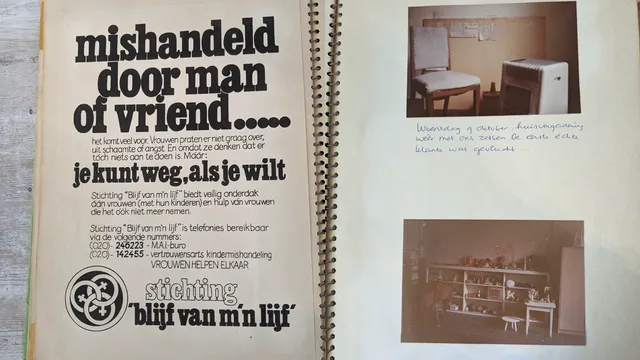 mishandeld
door man
of vriend.....
het komt veel voor. Vrouwen praten er niet graag over,
uit schaamte of angst. En omdat ze denken dat er
tóch niets aan te doen is. Máár:
je kunt weg, als je wilt
Stichting "Blijf van m'n lijf" biedt veilig onderdak
áán vrouwen (met hun kinderen) en hulp van vrouwen
die het óók niet meer nemen.
Stichting "Blijf van m'n lijf" is telefonies bereikbaar
via de volgende nummers:
(020)- 246223 - M.A.I.-buro
(020)- 142455 - vertrouwensarts kindermishandeling
VROUWEN HELPEN ELKAAR
stichting
"blijf van m'n lijf"
Woensdag 9 oktober, huisvergadering
weer met ons zessen. De eerste echte
klant was gevlucht